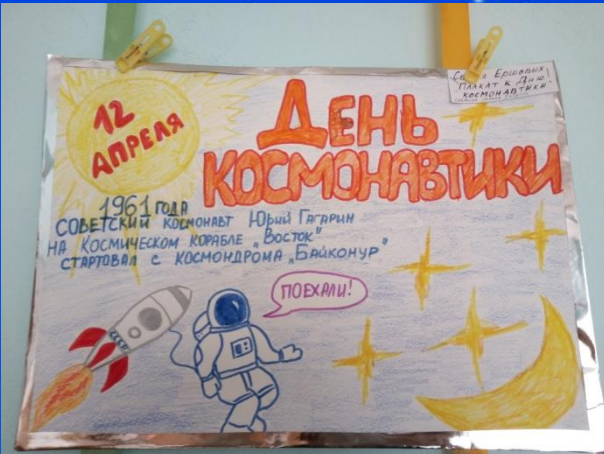 12
АПРЕЛЯ
ДЕНЬ
КОСМОНАВТИКИ
Семья Ершовых
Плакат к Дню
космонавтики!
1961 ГОДА
СОВЕТСКИЙ КОСМОНАВТ ЮРИЙ ГАГАРИН
НА КОСМИЧЕСКОМ КОРАБЛЕ „ВОСТОК"
СТАРТОВАЛ С КОСМОНДРОМА „БАЙКОНУР"
ПОЕХАЛИ!
СССР